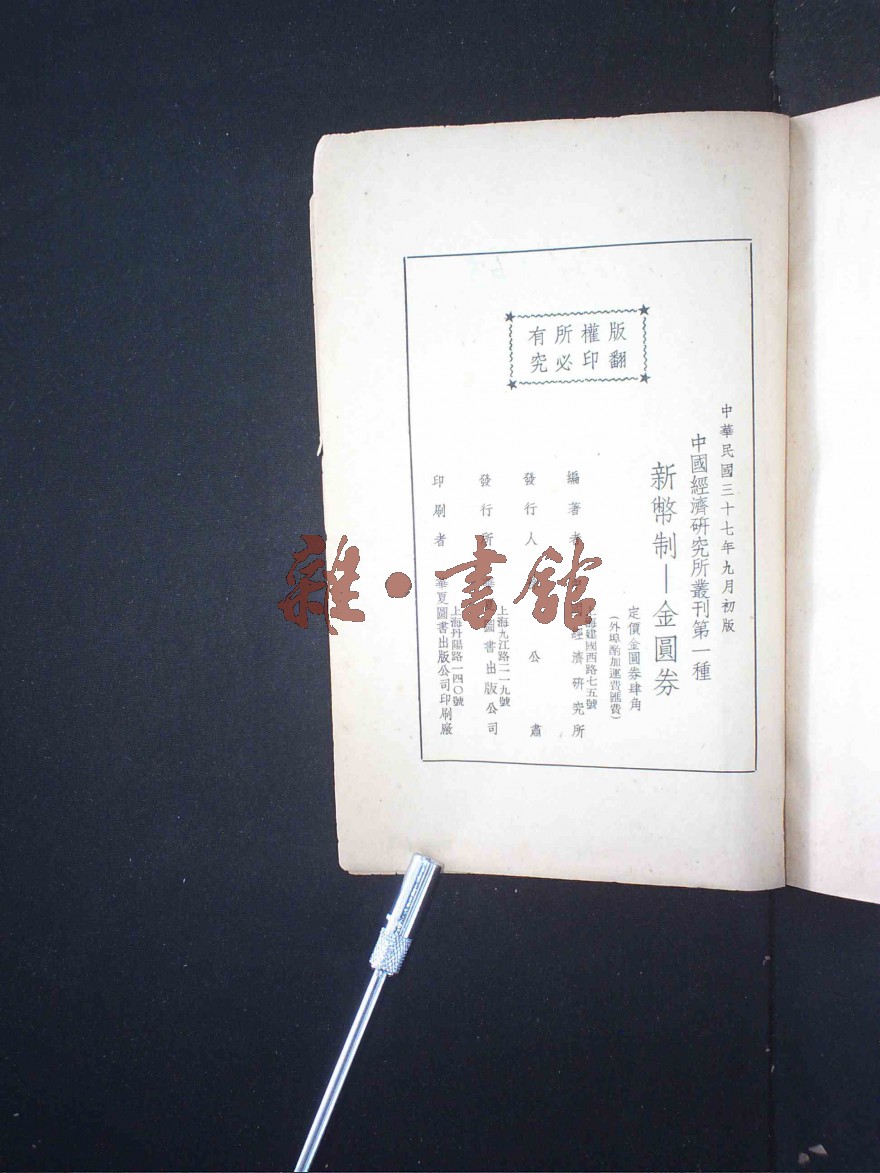 版權所有
翻印必究
中華民國三十七年九月初版
中國經濟研究所叢刊第一種
新幣制—金圓券
定價金圓券肆角
(外埠酌加運費匯費)
編著者 經濟研究所
上海建國西路七五號
發行人 公肅
發行所 圖書出版公司
上海九江路二一九號
印刷者 華夏圖書出版公司印刷廠
上海丹陽路一四〇號
雜·書館